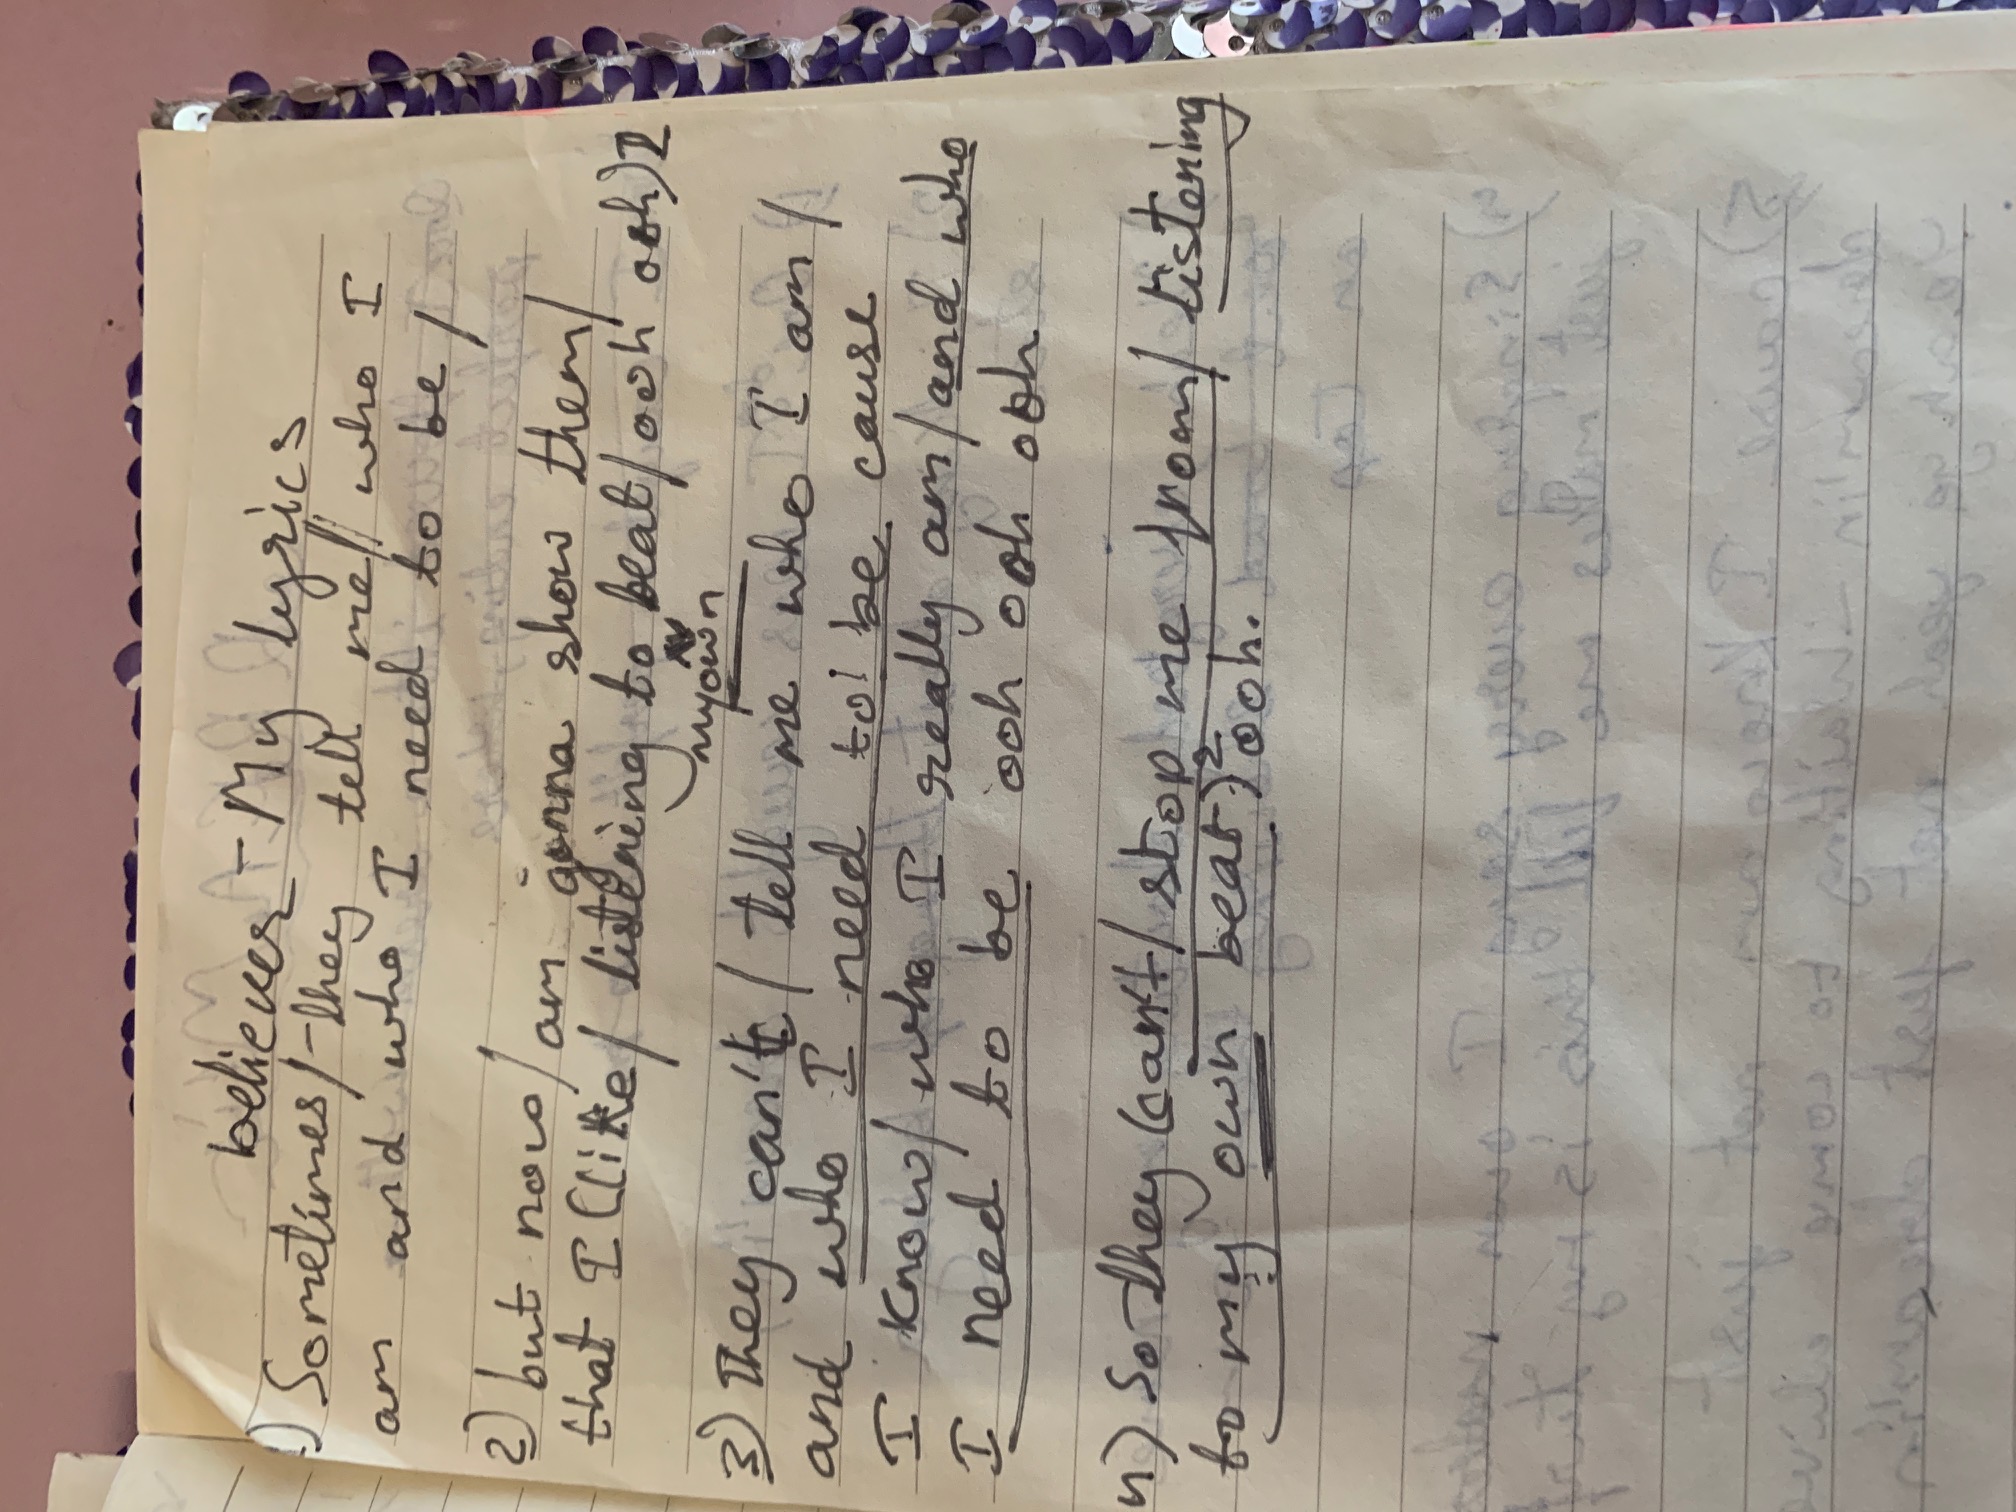 believer - My lyrics
1) Sometimes/ they tell me// who I
am and who I need to be /
2) but now/ am gonna show them/
that I (like/ listening to beat/ ooh ooh)2
my own
3) They can't / tell me who I am /
and who I need to be cause
I know/ who I really am/ and who
I need to be ooh ooh ooh
4) So they (can't/ stop me from/ listening
to my own beat)2 ooh.